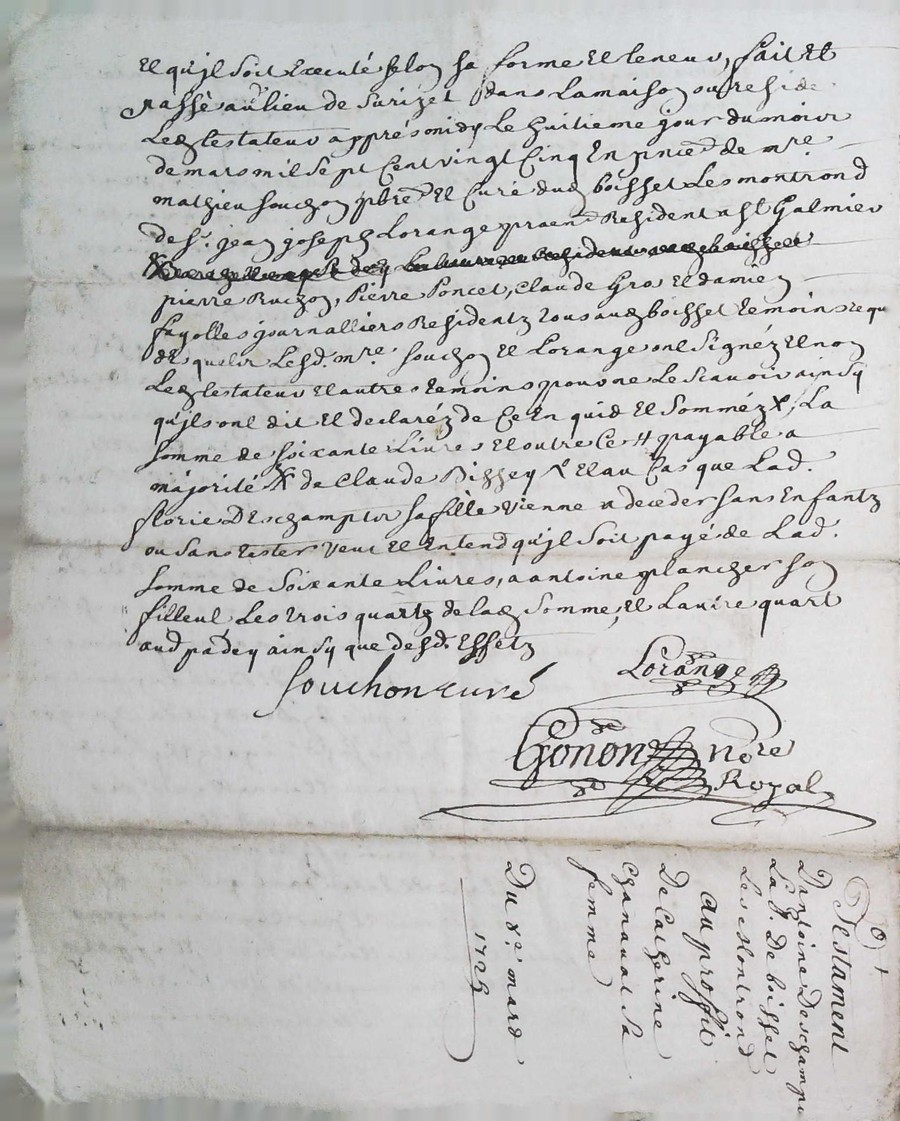 Et qu'jl soit Executé selon sa forme Et teneur, fait Et
passé au lieu de Surizet dans Lamaison ou reside
Led testateur apprés midy Le huitieme jour du moir
de mars mil sept Cent vingt Cinq En pnce de mre
mathieu souchon pbre Et Curé dud boisset Les montrond
de sr. jean joseph Lorange praen Resident a st Galmier
pierre Ruchon, Pierre Poncet, Claude Gros Et damien
fayolles journalliers Residentz tous aud boisset temoins requ
Lesd. mre souchon Et Lorange ont signéz Et non
Led testateur Et autres temoins pour ne Le scavoir ainsy
qu'jls ont dit Et declaréz de Ce Enquis Et somméz X, La
somme de soixante Livres Et outre Ce # payable a
majorité X de Claude Bissey X Et au Cas que Lad.
florie Deschamptz sa fille vienne a deceder sans Enfantz
ou sans tester veut Et Entend qu'jl soit payé de Lad.
somme de soixante Livres, a antoine plancher son
filleul Les trois quartz de lad somme, Et Lautre quart
aud pa dey ainsy que desd. Effetz
souchon curé
Lorange
Gonon nore
Royal
Testament
Dantoine Deschamps
La Po. De boisset
Les Montrond
au proffit
De Catherine
Chanavat sa
femme
Du 8e. mard
1725